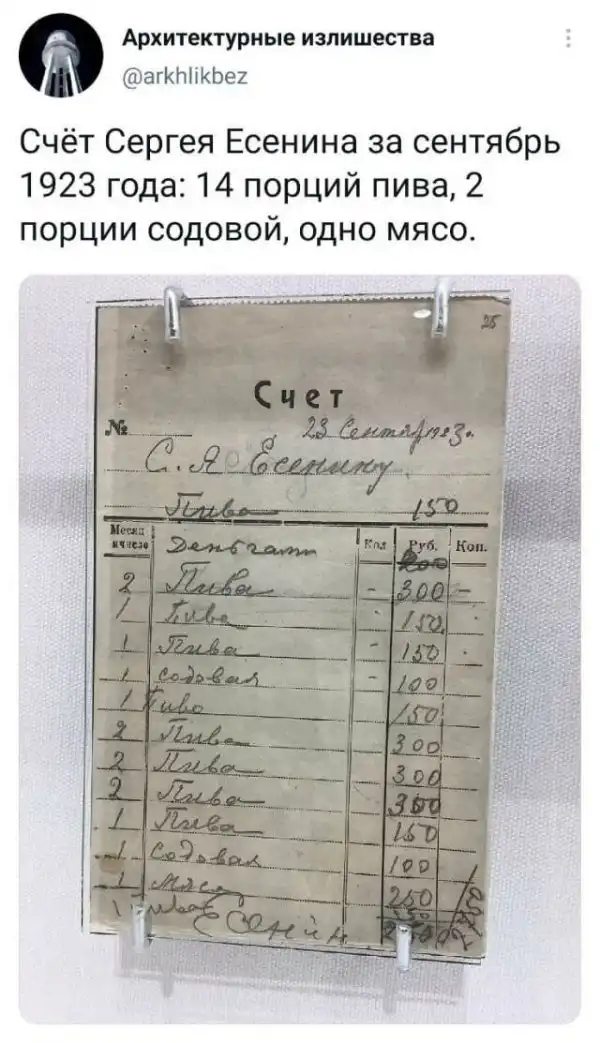 Архитектурные излишества
@arkhlikbez
Счёт Сергея Есенина за сентябрь
1923 года: 14 порций пива, 2
порции содовой, одно мясо.
25
Счет
№ 23 Сентяб
С. А Есенину
Пива 150
Месяц и число Деньгами Кол Руб. Коп.
2 Пива - 300 -
1 Пива 150
1 Пива - 150
1 содовая - 100
1 Пиво 150
2 Пива 300
2 Пива 300
2 Пива 300
1 Пива 150
1 Содовая 100
1 Мясо 250
1 Пиво 150
Есенин